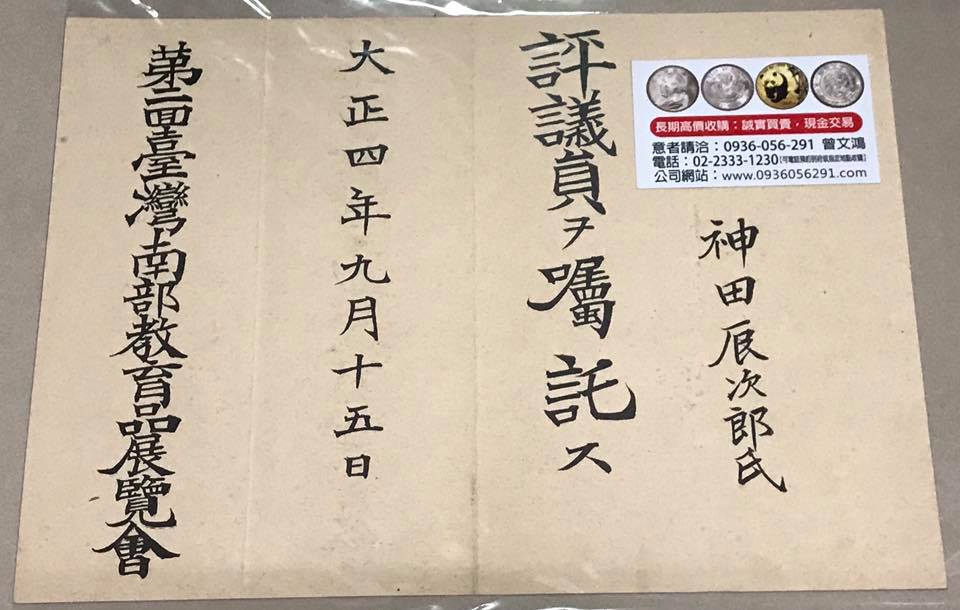 長期高價收購：誠實買賣，現金交易
意者請洽：0936-056-291 曾文鴻
電話：02-2333-1230(可電話預約到府或指定地點收購)
公司網站：www.0936056291.com
神田辰次郎氏
評議員ヲ囑託ス
大正四年九月十五日
第二囬臺灣南部教育品展覽會